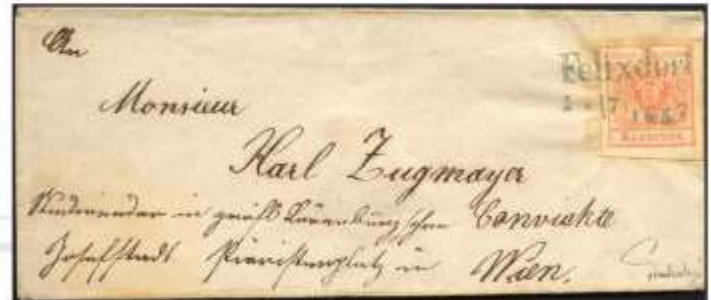 An
Felixdorf
Monsieur
Karl Zugmayer
Studierender in gräfl Löwenburg'schen Convickte
Josefstadt Piaristenplatz in Wien.